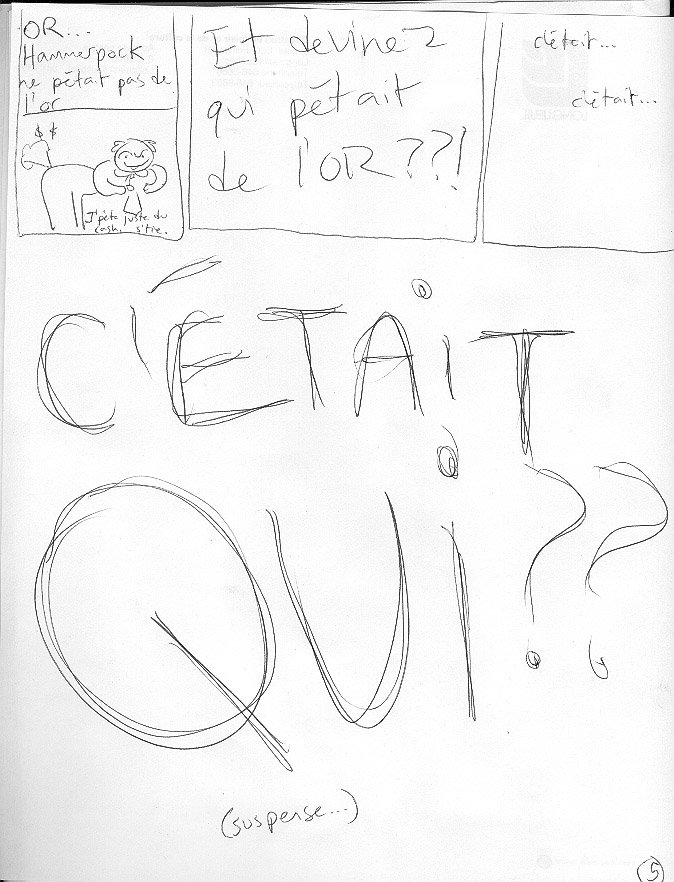 OR...
Hammerpock
ne pétait pas de
l'or
$ $
J'pète juste du
cash, s'tie.
Et devinez
qui pétait
de l'OR???!
c'était...
c'était...
C'ÉTAiT
QUi??
(suspense...)
5